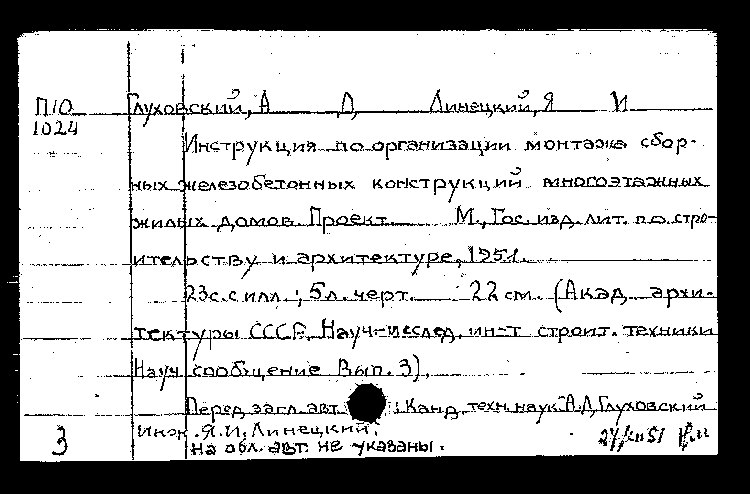 П10 Глуховский, А Д, Линецкий, Я И
1024
Инструкция по организации монтажа сбор-
ных железобетонных конструкций многоэтажных
жилых домов. Проект. М., Гос. изд. лит. по стро-
ительству и архитектуре, 1951.
23с. с илл.; 5л. черт. 22 см. (Акад. архи-
тектуры СССР. Науч.-исслед. ин-т строит. техники
Науч. сообщение Вып. 3).
Перед загл. авт. : Канд. техн. наук А.Д. Глуховский
3 Инж. Я.И. Линецкий.
На обл. авт. не указаны.